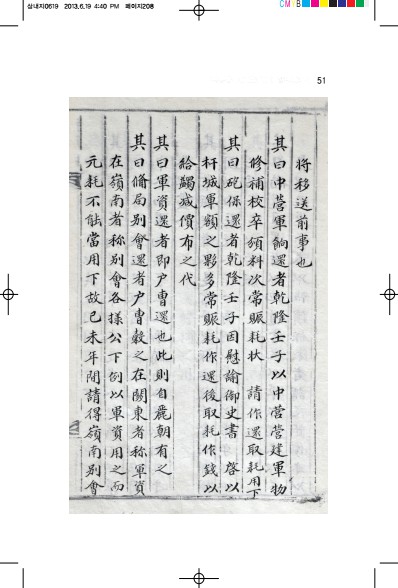 삼내지0619  2013.6.19 4:40 PM  페이지208
CMYB
51
將移送前事也
其曰中營軍餉還者乾隆壬子以中營營建軍物
修補校卒頒料次常賑耗狀 請作還取耗用下
其曰砲保還者乾隆壬子因慰諭御史書 啓以
杆城軍額之夥多常賑耗作還後取耗作錢以
給蠲減價布之代
其曰軍資還者即户曹還也此則自麗朝有之
其曰備局別會還者户曹穀之在關東者称軍資
在嶺南者称別會各樣公下例以軍資用之而
元耗不能當用下故已未年間請得嶺南別會